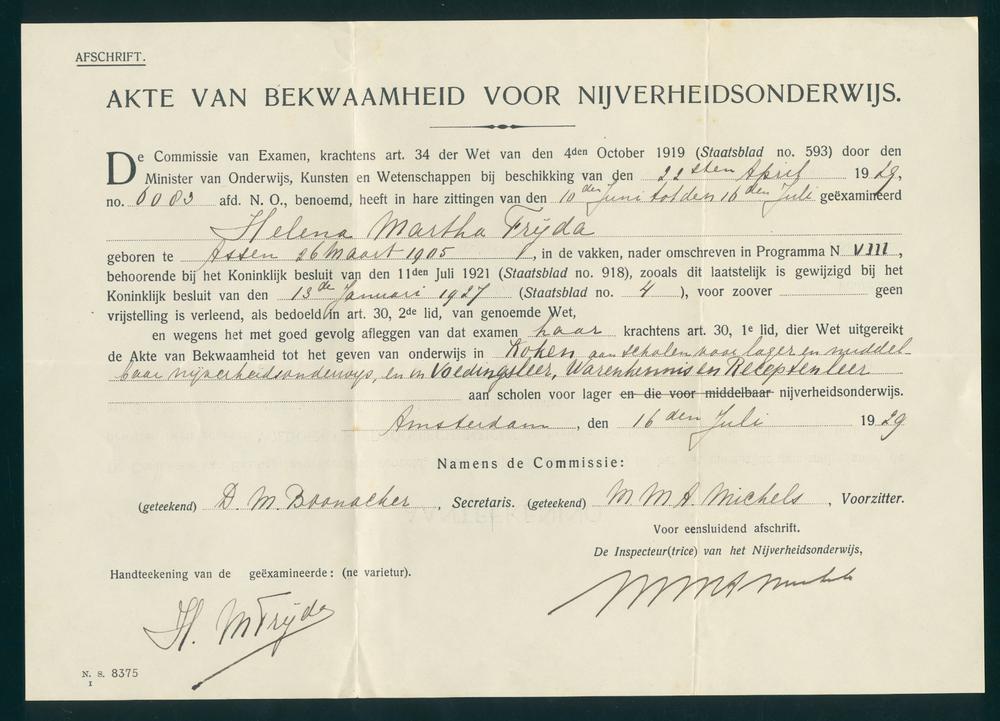 AFSCHRIFT.
AKTE VAN BEKWAAMHEID VOOR NIJVERHEIDSONDERWIJS.
De Commissie van Examen, krachtens art. 34 der Wet van den 4den October 1919 (Staatsblad no. 593) door den
Minister van Onderwijs, Kunsten en Wetenschappen bij beschikking van den 22sten April 1929,
no. 6083 afd. N. O., benoemd, heeft in hare zittingen van den 10den Juni tot den 16den Juli geëxamineerd
Helena Martha Frijda
geboren te Assen 26 Maart 1905, in de vakken, nader omschreven in Programma N VIII,
behoorende bij het Koninklijk besluit van den 11den Juli 1921 (Staatsblad no. 918), zooals dit laatstelijk is gewijzigd bij het
Koninklijk besluit van den 13de Januari 1927 (Staatsblad no. 4), voor zoover geen
vrijstelling is verleend, als bedoeld in art. 30, 2de lid, van genoemde Wet,
en wegens het met goed gevolg afleggen van dat examen haar krachtens art. 30, 1e lid, dier Wet uitgereikt
de Akte van Bekwaamheid tot het geven van onderwijs in Koken aan scholen voor lager en middel-
baar nijverheidsonderwijs, en in Voedingsleer, Warenkennis en Receptenleer
aan scholen voor lager en die voor middelbaar nijverheidsonderwijs.
Amsterdam, den 16den Juli 1929
Namens de Commissie:
(geteekend) D. M. Boonacker, Secretaris. (geteekend) M. M. A. Michels, Voorzitter.
Voor eensluidend afschrift.
De Inspecteur(trice) van het Nijverheidsonderwijs,
Handteekening van de geëxamineerde: (ne varietur).
M M A Michels
H. M Frijda
N. S. 8375
I